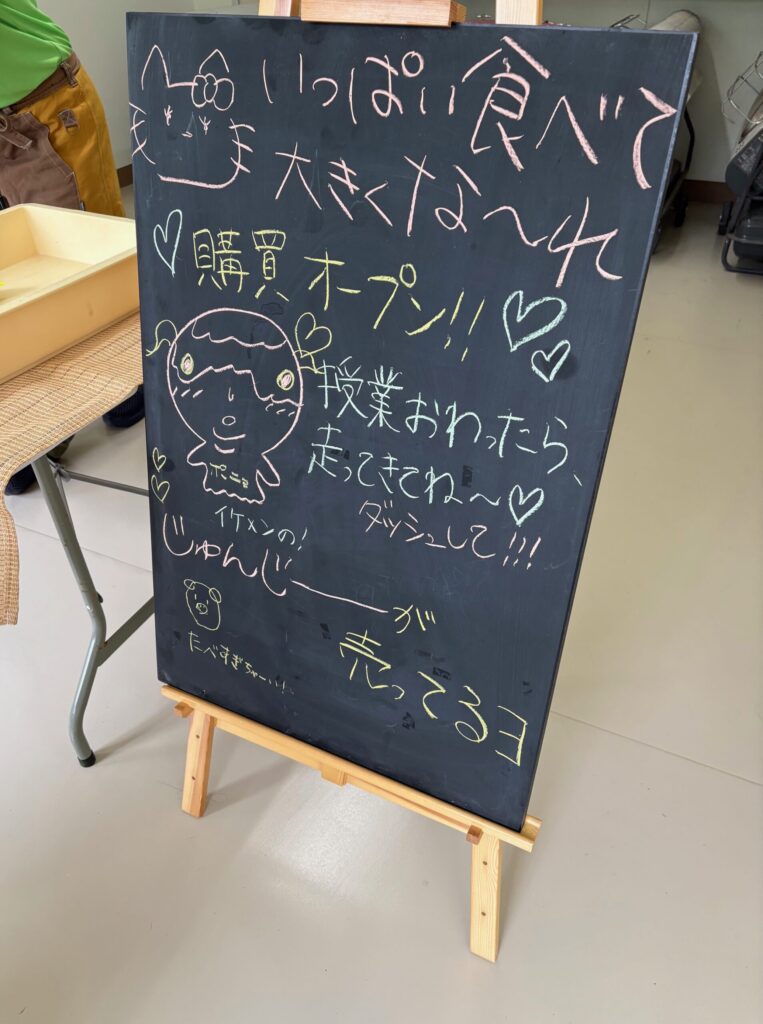 いっぱい食べて
大きくな〜れ
購買オープン!!
授業おわったら、
走ってきてね〜
ダッシュして!!!
ポニョ
イケメンの!
じゅんじーが
売ってるヨ
たべすぎちゃーい!